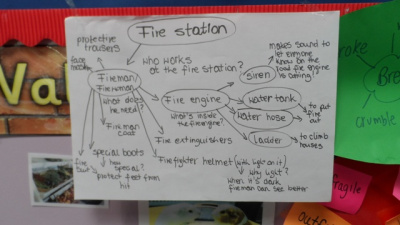 Fire station
protective
trousers
face mask
who works
at the fire station?
makes sound to
let everyone
know on the
road fire engine
is coming!
siren
Fireman/
Firewoman
what does
he need?
Fire engine
what's inside
the fire engine?
water tank
water hose
to put
fire
out
ladder
to climb
houses
Fireman
coat
Fire extinguishers
special boots
how
special?
protect feet from
hit
fire
suit
Firefighter helmet (with light on it)
why light?
when it's dark
fireman can see better
Val
oke
Bre
crumble
fragile